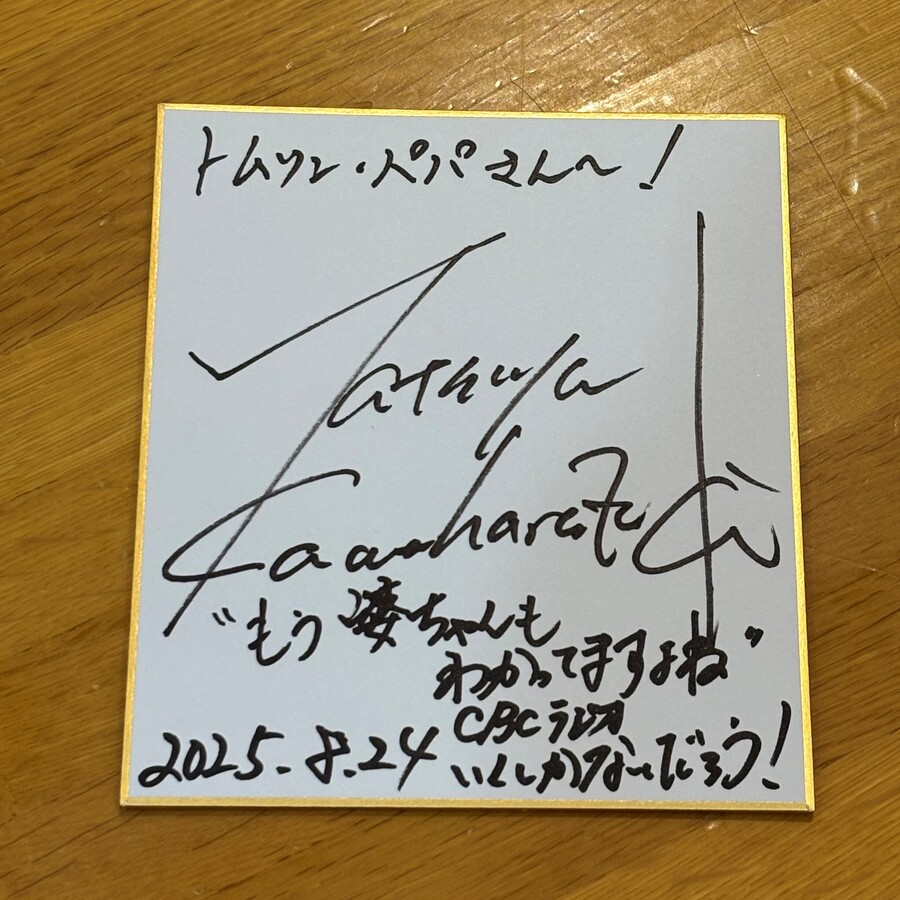 トムソン・パパさん〜!
Tatsuya
Kawaharazaki
"もう湊ちゃんも
わかってますよね"
CBCラジオ
いくしかないだろう!
2025.8.24